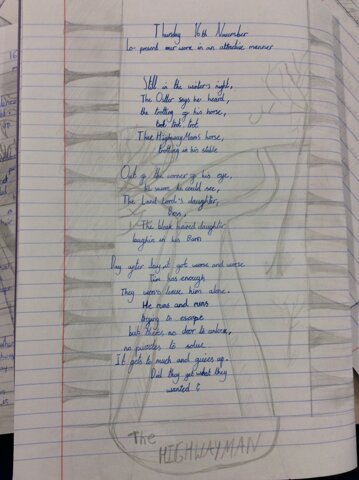 Thursday 16th November
Lo- present our work in an attractive manner
Still in the winter's night,
The Ostler says he heard,
the trotting of his horse,
trot trot trot
The HighwayMan's horse,
trotting in his stable
Out of the corner of his eye,
he swore he could see,
The Land Lord's daughter,
Bess,
The black haired daughter
laughin in his barn
Day after day, it gets worse and worse
Tim has enough
They won't leave him alone.
He runs and runs
trying to escape
but there's no door to unlock,
no puzzles to solve
It gets to much and gives up.
Did they get what they
wanted?
The
HIGHWAYMAN